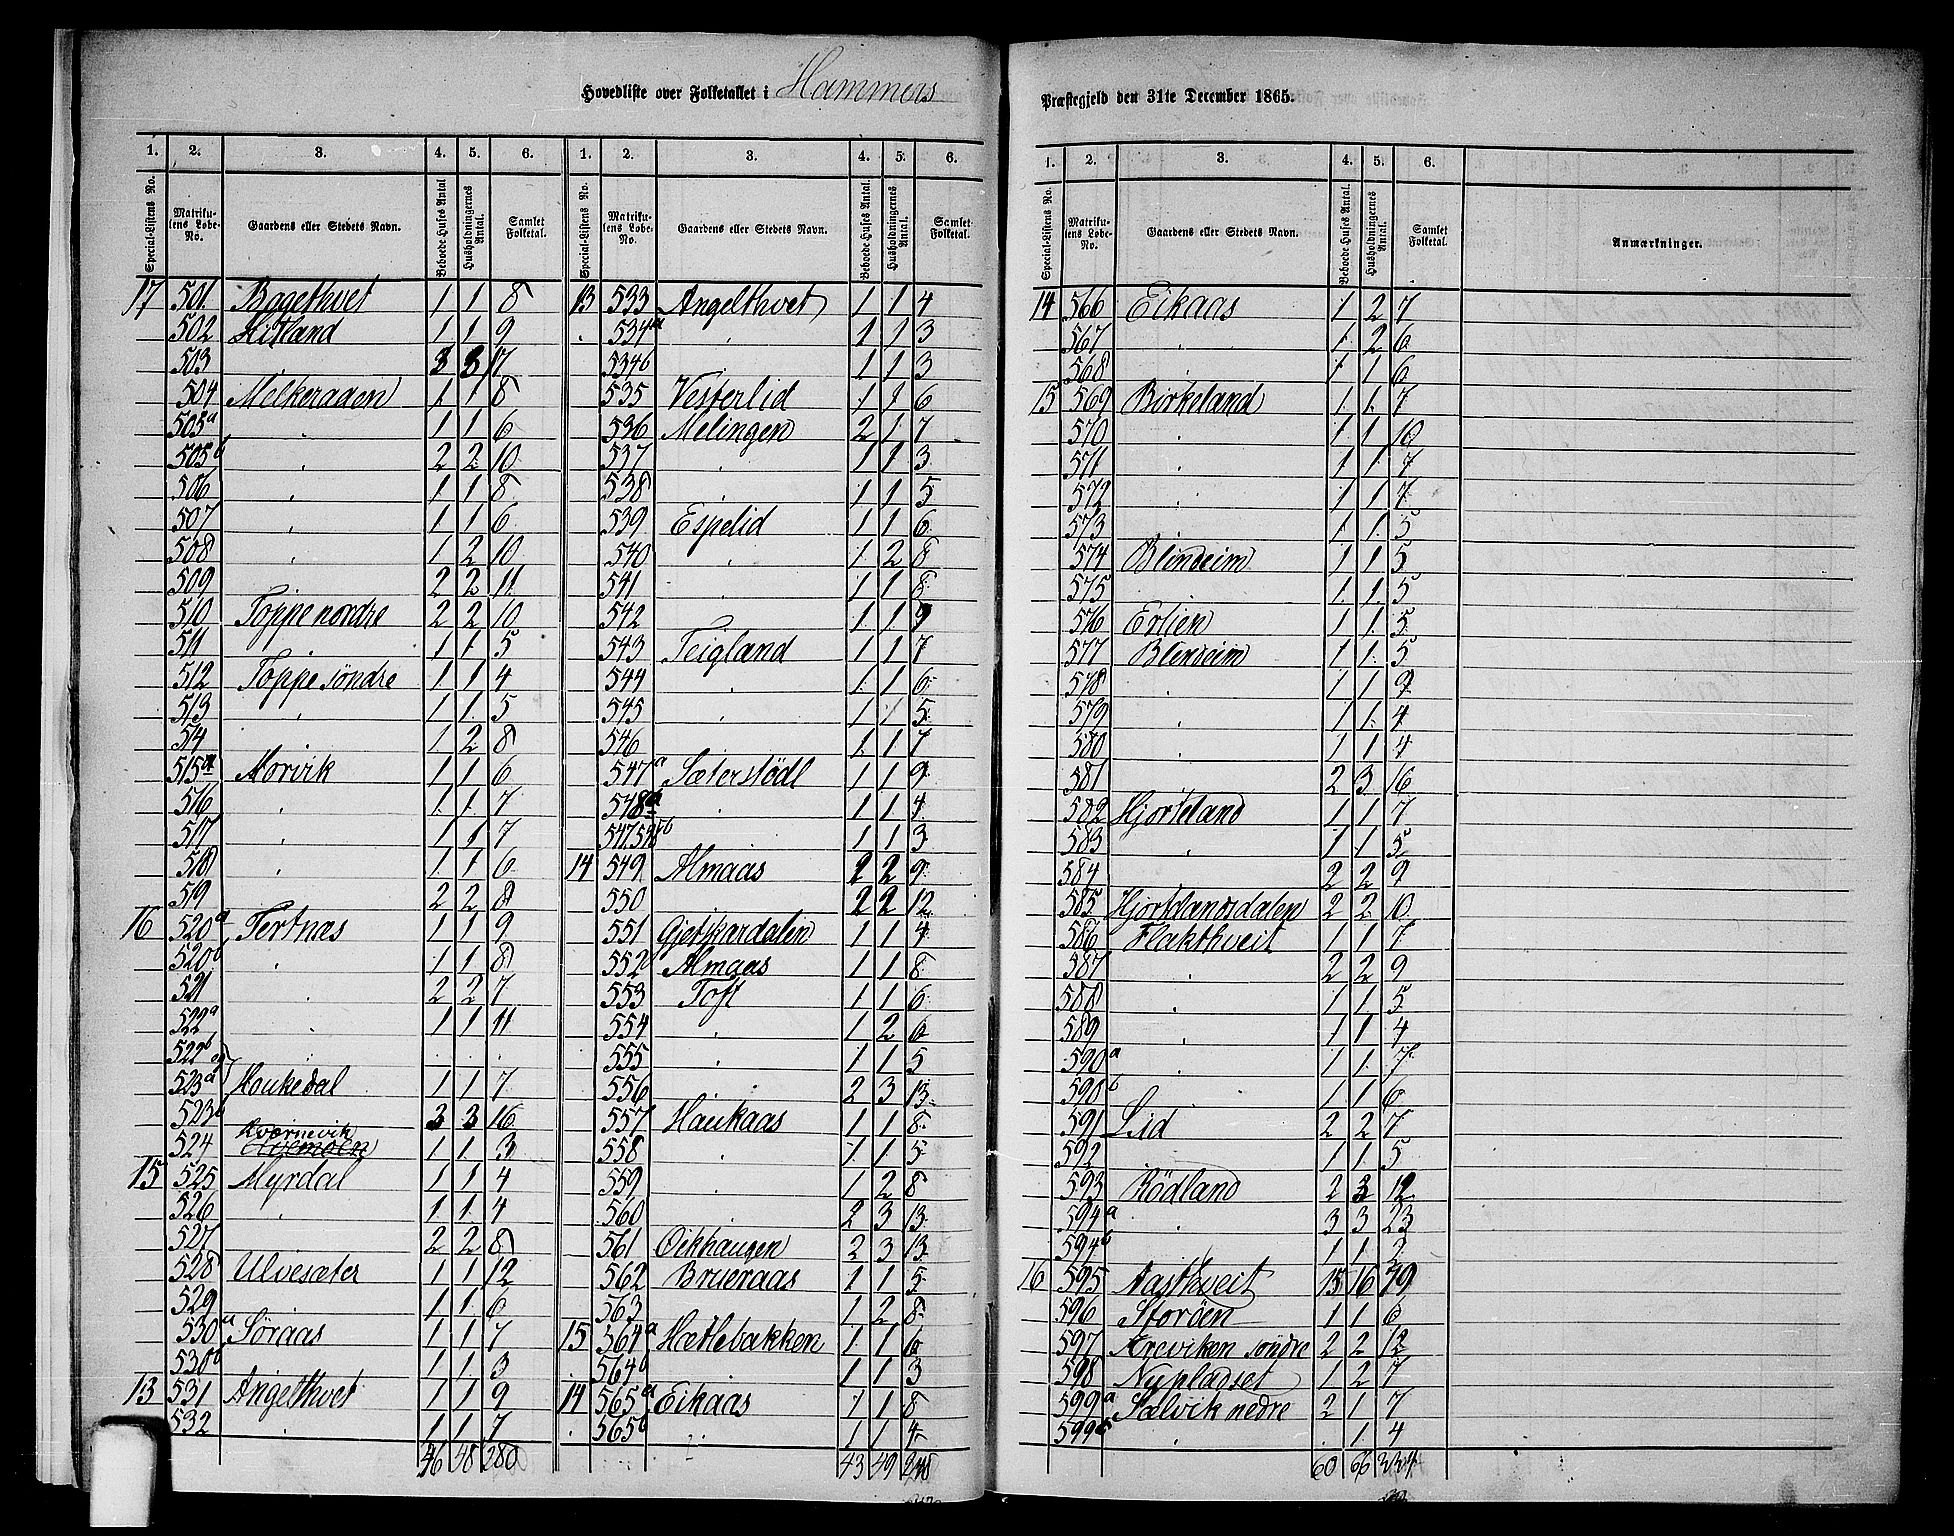 Hovedliste over Folketallet i Hammers
Præstegjeld den 31te December 1865.
1. 2. 3. 4. 5. 6.
Special-Listens No. Matrikulens Løbe-No. Gaardens eller Stedets Navn. Beboede Huses Antal Husholdningernes Antal. Samlet Folketal.
17 501 Bagethvet 1 1 8
502 Hitland 1 1 9
503 3 3 17
504 Melkeraaen 1 1 8
505a " 1 1 6
505b " 2 2 10
506 " 1 1 8
507 " 1 1 6
508 " 1 2 10
509 2 2 11
510 Toppe nordre 2 2 10
511 1 1 5
512 Toppe söndre 1 1 4
513 " 1 1 5
514 1 2 8
515a Morvik 1 1 6
516 " 1 1 7
517 " 1 1 7
518 " 1 1 6
519 2 2 8
16 520a Tertnæs 1 1 9
520b 1 1 8
521 " 2 2 7
522a " 1 1 11
522b " " "
523a Haukedal 1 1 7
523b 3 3 16
Kværnevik
524 1 1 3
15 525 Myrdal 1 1 4
526 " 1 1 4
527 2 2 8
528 Ulvesæter 1 1 12
529 1 1 6
530a Söraas 1 1 7
530b 1 1 3
13 531 Angelthvet 1 1 9
532 " 1 1 7
46 48 280
1. 2. 3. 4. 5. 6.
Special-Listens No. Matrikulens Løbe-No. Gaardens eller Stedets Navn. Beboede Huses Antal. Husholdningernes Antal. Samlet Folketal.
13 533 Angelthvet 1 1 4
534a " 1 1 3
534b 1 1 3
535 Vesterlid 1 1 6
536 Melingen 2 1 7
537 " 1 1 3
538 " 1 1 5
539 Espelid 1 1 6
540 " 1 2 8
541 " 1 1 8
542 1 1 9
543 Teigland 1 1 7
544 " 1 1 6
545 " 1 1 5
546 1 1 7
547a Sæterstödl 1 1 9
548a " 1 1 4
547,548b 1 1 3
14 549 Almaas 2 2 9
550 2 2 12
551 Gjetikardalen 1 1 4
552 Almaas 1 1 8
553 Toft 1 1 6
554 " 1 2 6
555 " 1 1 5
556 2 3 13
557 Haukaas 1 1 8
558 " 1 1 5
559 " 1 2 8
560 2 3 13
561 Oikhaugen 2 3 13
562 Brueraas 1 1 5
563 1 2 8
15 564a Hætlebakken 1 1 6
564b 1 1 3
14 565a Eikaas 1 1 8
565b " 1 1 4
43 49
1. 2. 3. 4. 5. 6.
Special-Listens No. Matrikulens Løbe-No. Gaardens eller Stedets Navn. Beboede Huses Antal. Husholdningernes Antal. Samlet Folketal. Anmærkninger.
14 566 Eikaas 1 2 7
567 " 1 2 6
568 1 1 6
15 569 Birkeland 1 1 7
570 " 1 1 10
571 " 1 1 7
572 " 1 1 7
573 1 1 5
574 Blindeim 1 1 5
575 1 1 5
576 Erlien 1 1 5
577 Blindeim 1 1 5
578 " 1 1 9
579 " 1 1 4
580 " 1 1 4
581 2 3 16
582 Hjorteland 1 1 7
583 " 1 1 5
584 2 2 9
585 Hjortlandsdalen 2 2 10
586 Flakthveit 1 1 7
587 " 2 2 9
588 " 1 1 5
589 " 1 1 4
590a " 1 1 7
590b 1 1 6
591 Lid 2 2 7
592 1 1 5
593 Rödland 2 3 12
594a " 3 3 23
594b 1 1 2
16 595 Aasthveit 15 16 79
596 Storöen 1 1 6
597 Kreviken söndre 2 2 12
598 Nypladset 1 2 7
599a Salvik nedre 2 1 7
599 1 4
60 66